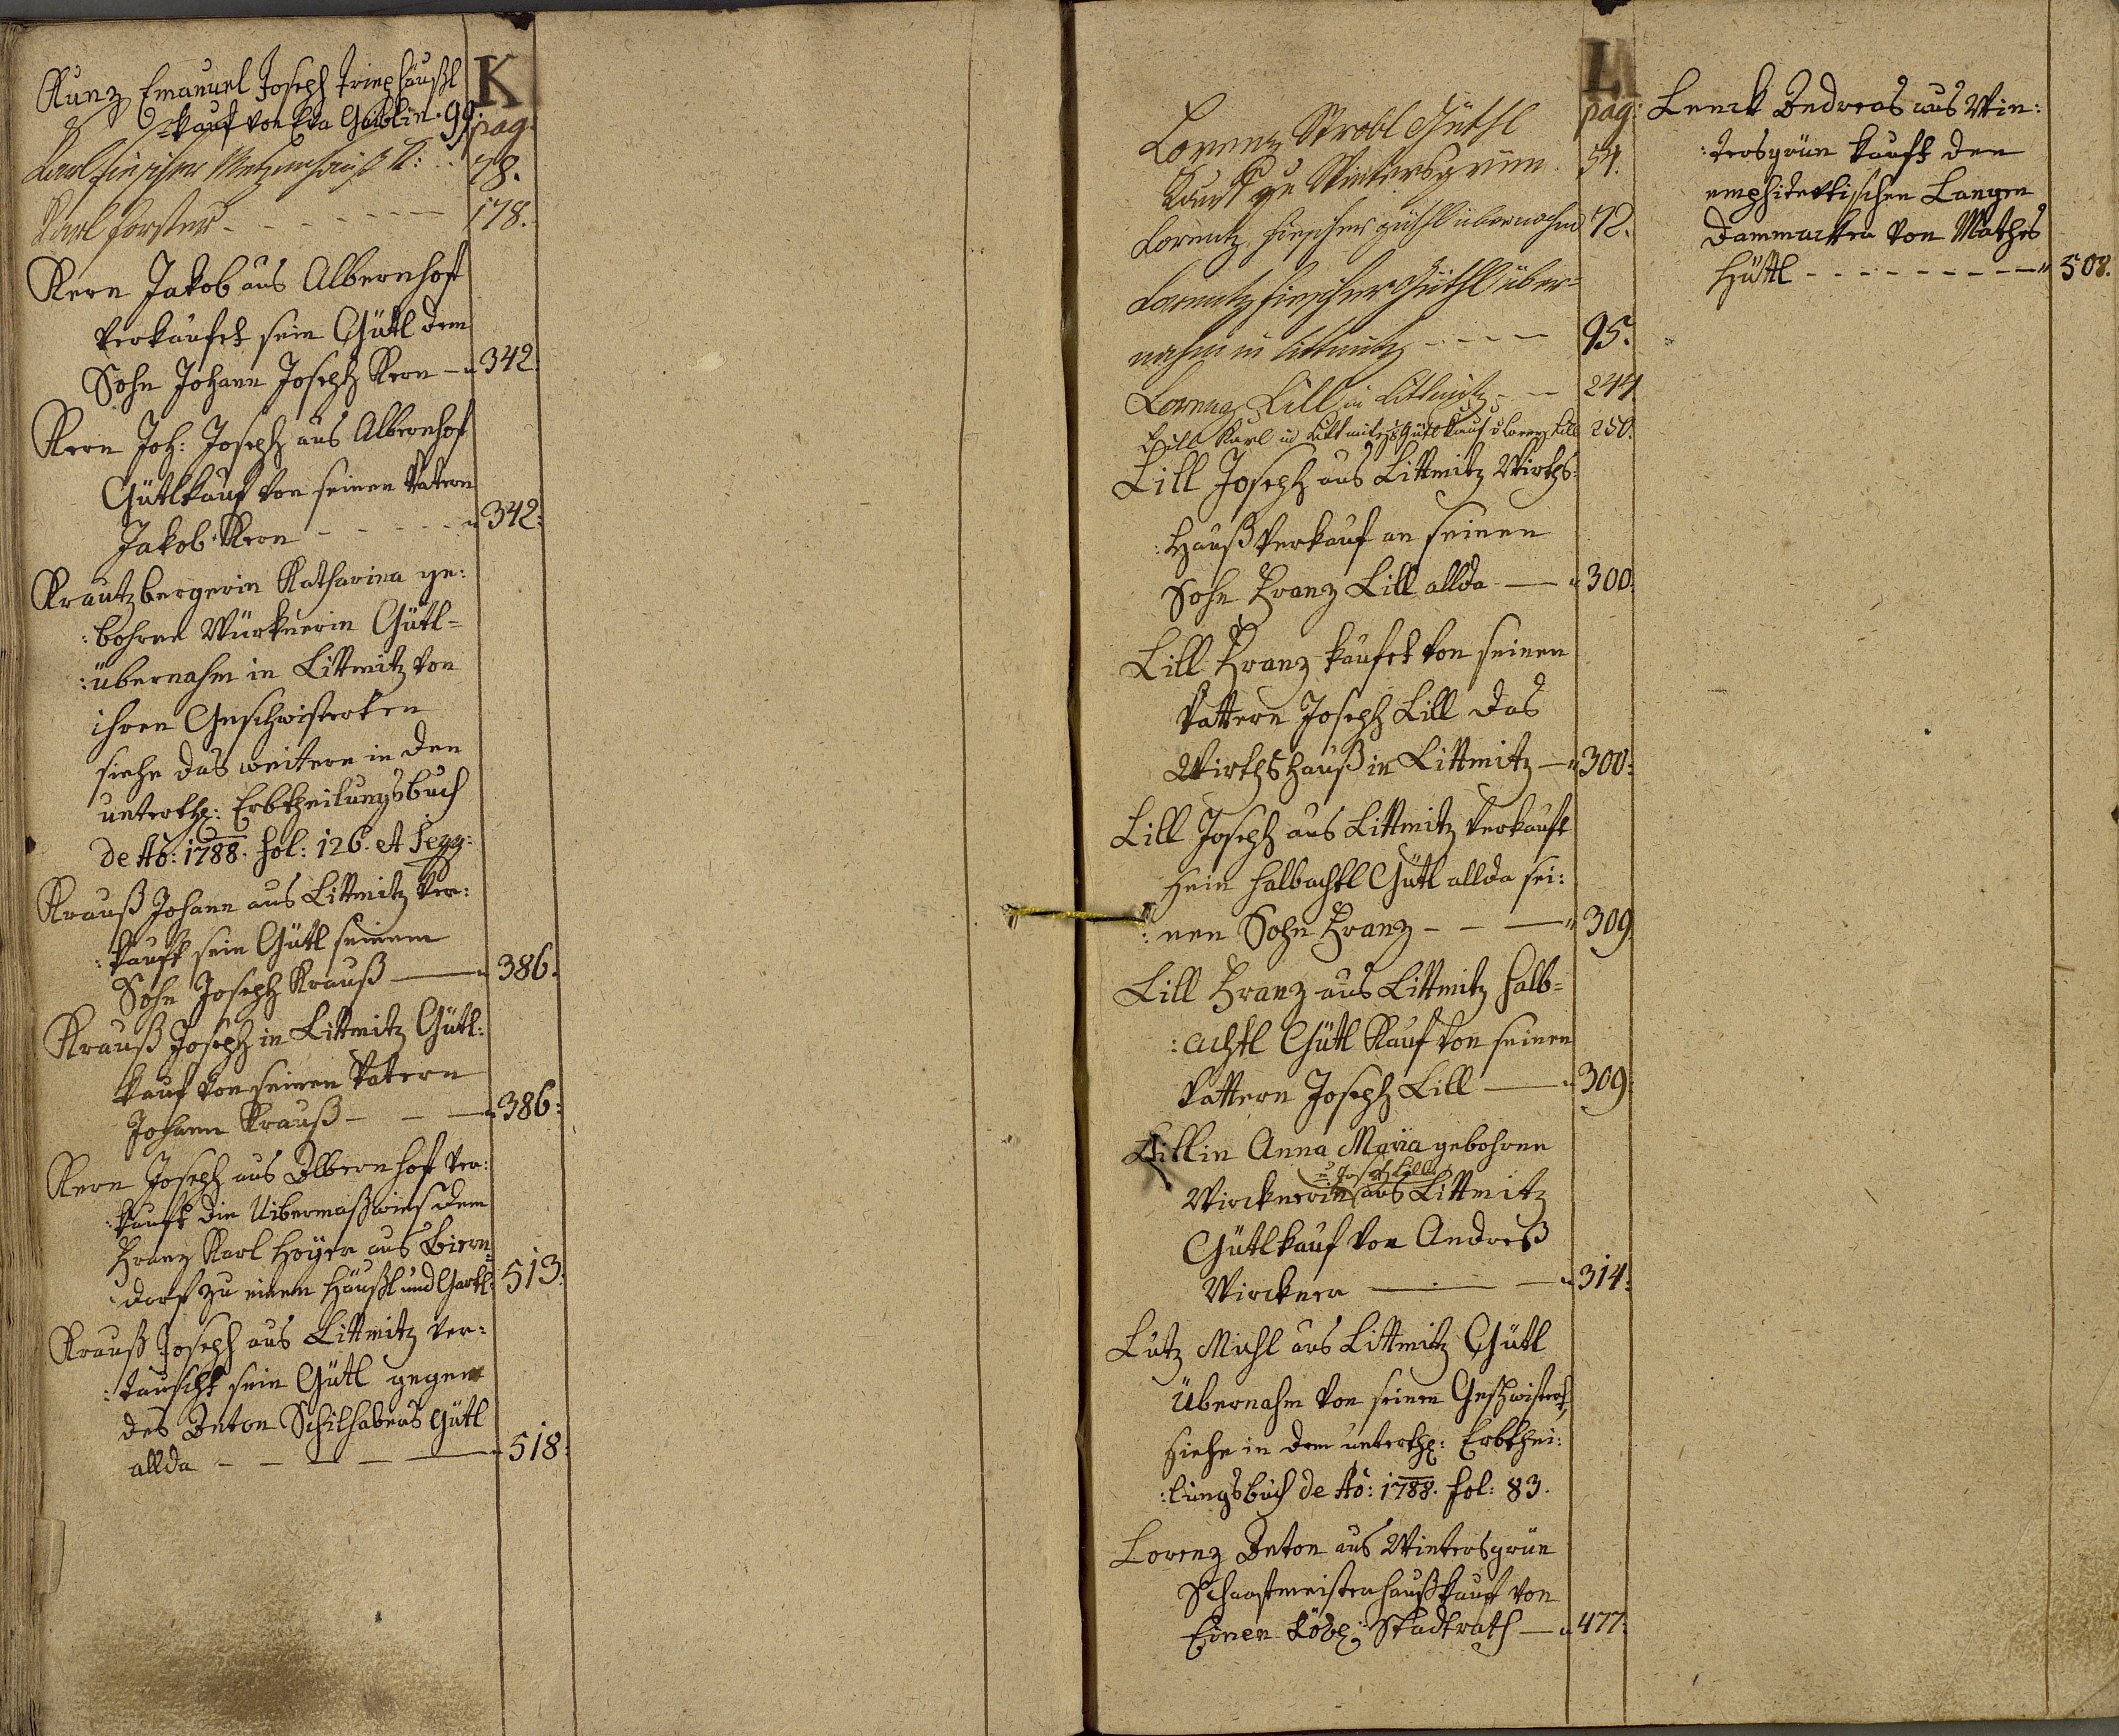 K
Kunz Emanuel Joseph Triephäußl
kauf von Eva Gaiblin. 99.
pag.
Karl Fischer 78.
Karl Forster - - - - - - 178.
Kern Jakob aus Albernhoff
verkaufet sein Gütl dem
Sohn Johann Joseph Kern - " 342.
Kern Joh: Joseph aus Albernhof
Gütlkauf von seinen Vatern
Jakob Kern - - - - - " 342:
Krautzbergerin Katharina ge:
:bohrne Würknerin Gütl=
:übernahm in Littmitz von
ihren Geschwisterten
siehe das weitere in den
unterth: Erbtheilungsbuch
de Ao: 1788. fol: 126. et seqq:
Krauß Johann aus Littmitz ver:
:kauft sein Gütl seinem
Sohn Joseph Krauß — " 386.
Krauß Joseph in Littmitz Gütl:
kauf von seinen Vatern
Johann Krauß - - — " 386:
Kern Joseph aus Albernhoff ver:
:kauft die Uibermaßwies dem
Franz Karl Hoÿer aus Birn=
dorf zu einem Häußl und Gartl: 513:
Krauß Joseph aus Littmitz ver:
:tauscht sein Gütl gegen
des Anton Schilhabens Gütl
allda - - — - — " 518:
L
pag:
Lorenz Strobl Güthl
Kauf zu Wintersgrün. 54.
Lorentz Fischer güthl übernahm 72.
Lorentz Fischer Güthl über=
nahm in Littmitz - - - - 95.
Lorenz Lill in Littmitz - — 244
Lill Karl in Littmitz Gütl Kauf v Lorenz Lill 250.
Lill Joseph aus Littmitz Wirths:
:Hauß verkauf an seinen
Sohn Franz Lill allda — " 300:
Lill Franz kaufet von seinen
Vattern Joseph Lill das
Wirthshauß in Littmitz — " 300:
Lill Joseph aus Littmitz verkauft
sein halbachtl Gütl allda sei:
:nen Sohn Franz - - — " 309
Lill Franz aus Littmitz halb=
:achtl Gütl Kauf von seinen
Vattern Joseph Lill — " 309:
Lillin Anna Maria gebohrne
Joseph Lill
Wircknerin aus Littmitz
Gütlkauf von Andreß
Wirckner — - — " 314:
Lutz Michl aus Littmitz Gütl
Übernahm von seinen Geschwistert
siehe in dem unterth: Erbthei:
:lungsbuch de Ao: 1788. fol: 83.
Lorenz Anton aus Wintersgrün
Schaafmeisterhaußkauf von
Einen Löbl: Stadtrath — " 477:
Lenck Andreas aus Win:
:tersgrün kauft den
emphitevtischen Langen
Dammacker von Mathes
Hüttl - - - - - - - - — " 508.